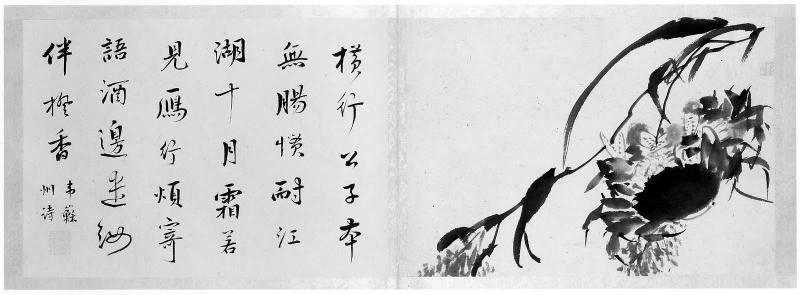 橫行公子本
無腸慣耐江
湖十月霜若
見鴈行煩寄
語酒邊
伴橙香
韋蘇
州詩